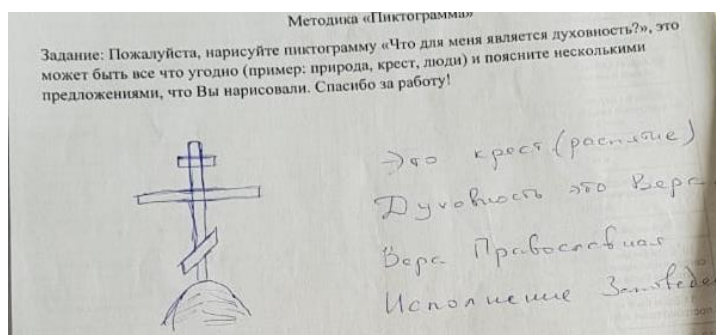 Методика «Пиктограмма»
Задание: Пожалуйста, нарисуйте пиктограмму «Что для меня является духовность?», это
может быть все что угодно (пример: природа, крест, люди) и поясните несколькими
предложениями, что Вы нарисовали. Спасибо за работу!
Это крест (распятие)
Духовность это Вера
Вера Православная
Исполнение Заповеде